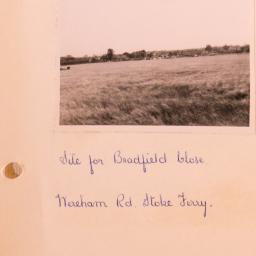 Site for Bradfield Close
Wereham Rd. Stoke Ferry.